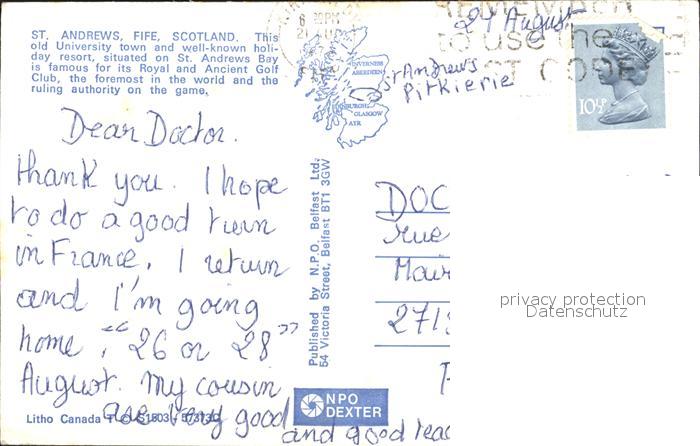 ST. ANDREWS, FIFE, SCOTLAND. This
old University town and well-known holi-
day resort, situated on St. Andrews Bay
is famous for its Royal and Ancient Golf
Club, the foremost in the world and the
ruling authority on the game.
6 30PM
REMEMBER
to use the
POST CODE
24 August
St Andrews
Pitkierie
INVERNESS
ABERDEEN
EDINBURGH
GLASGOW
AYR
10½P
Dear Doctor.
Thank you. I hope
to do a good turn
in France. I return
and I'm going
home, "26 or 28"
August. My cousin
are very good
and good teac
DOC
rue
Mair
271
Published by N.P.O. Belfast Ltd.
54 Victoria Street, Belfast BT1 3GW
NPO
DEXTER
Litho Canada
privacy protection
Datenschutz